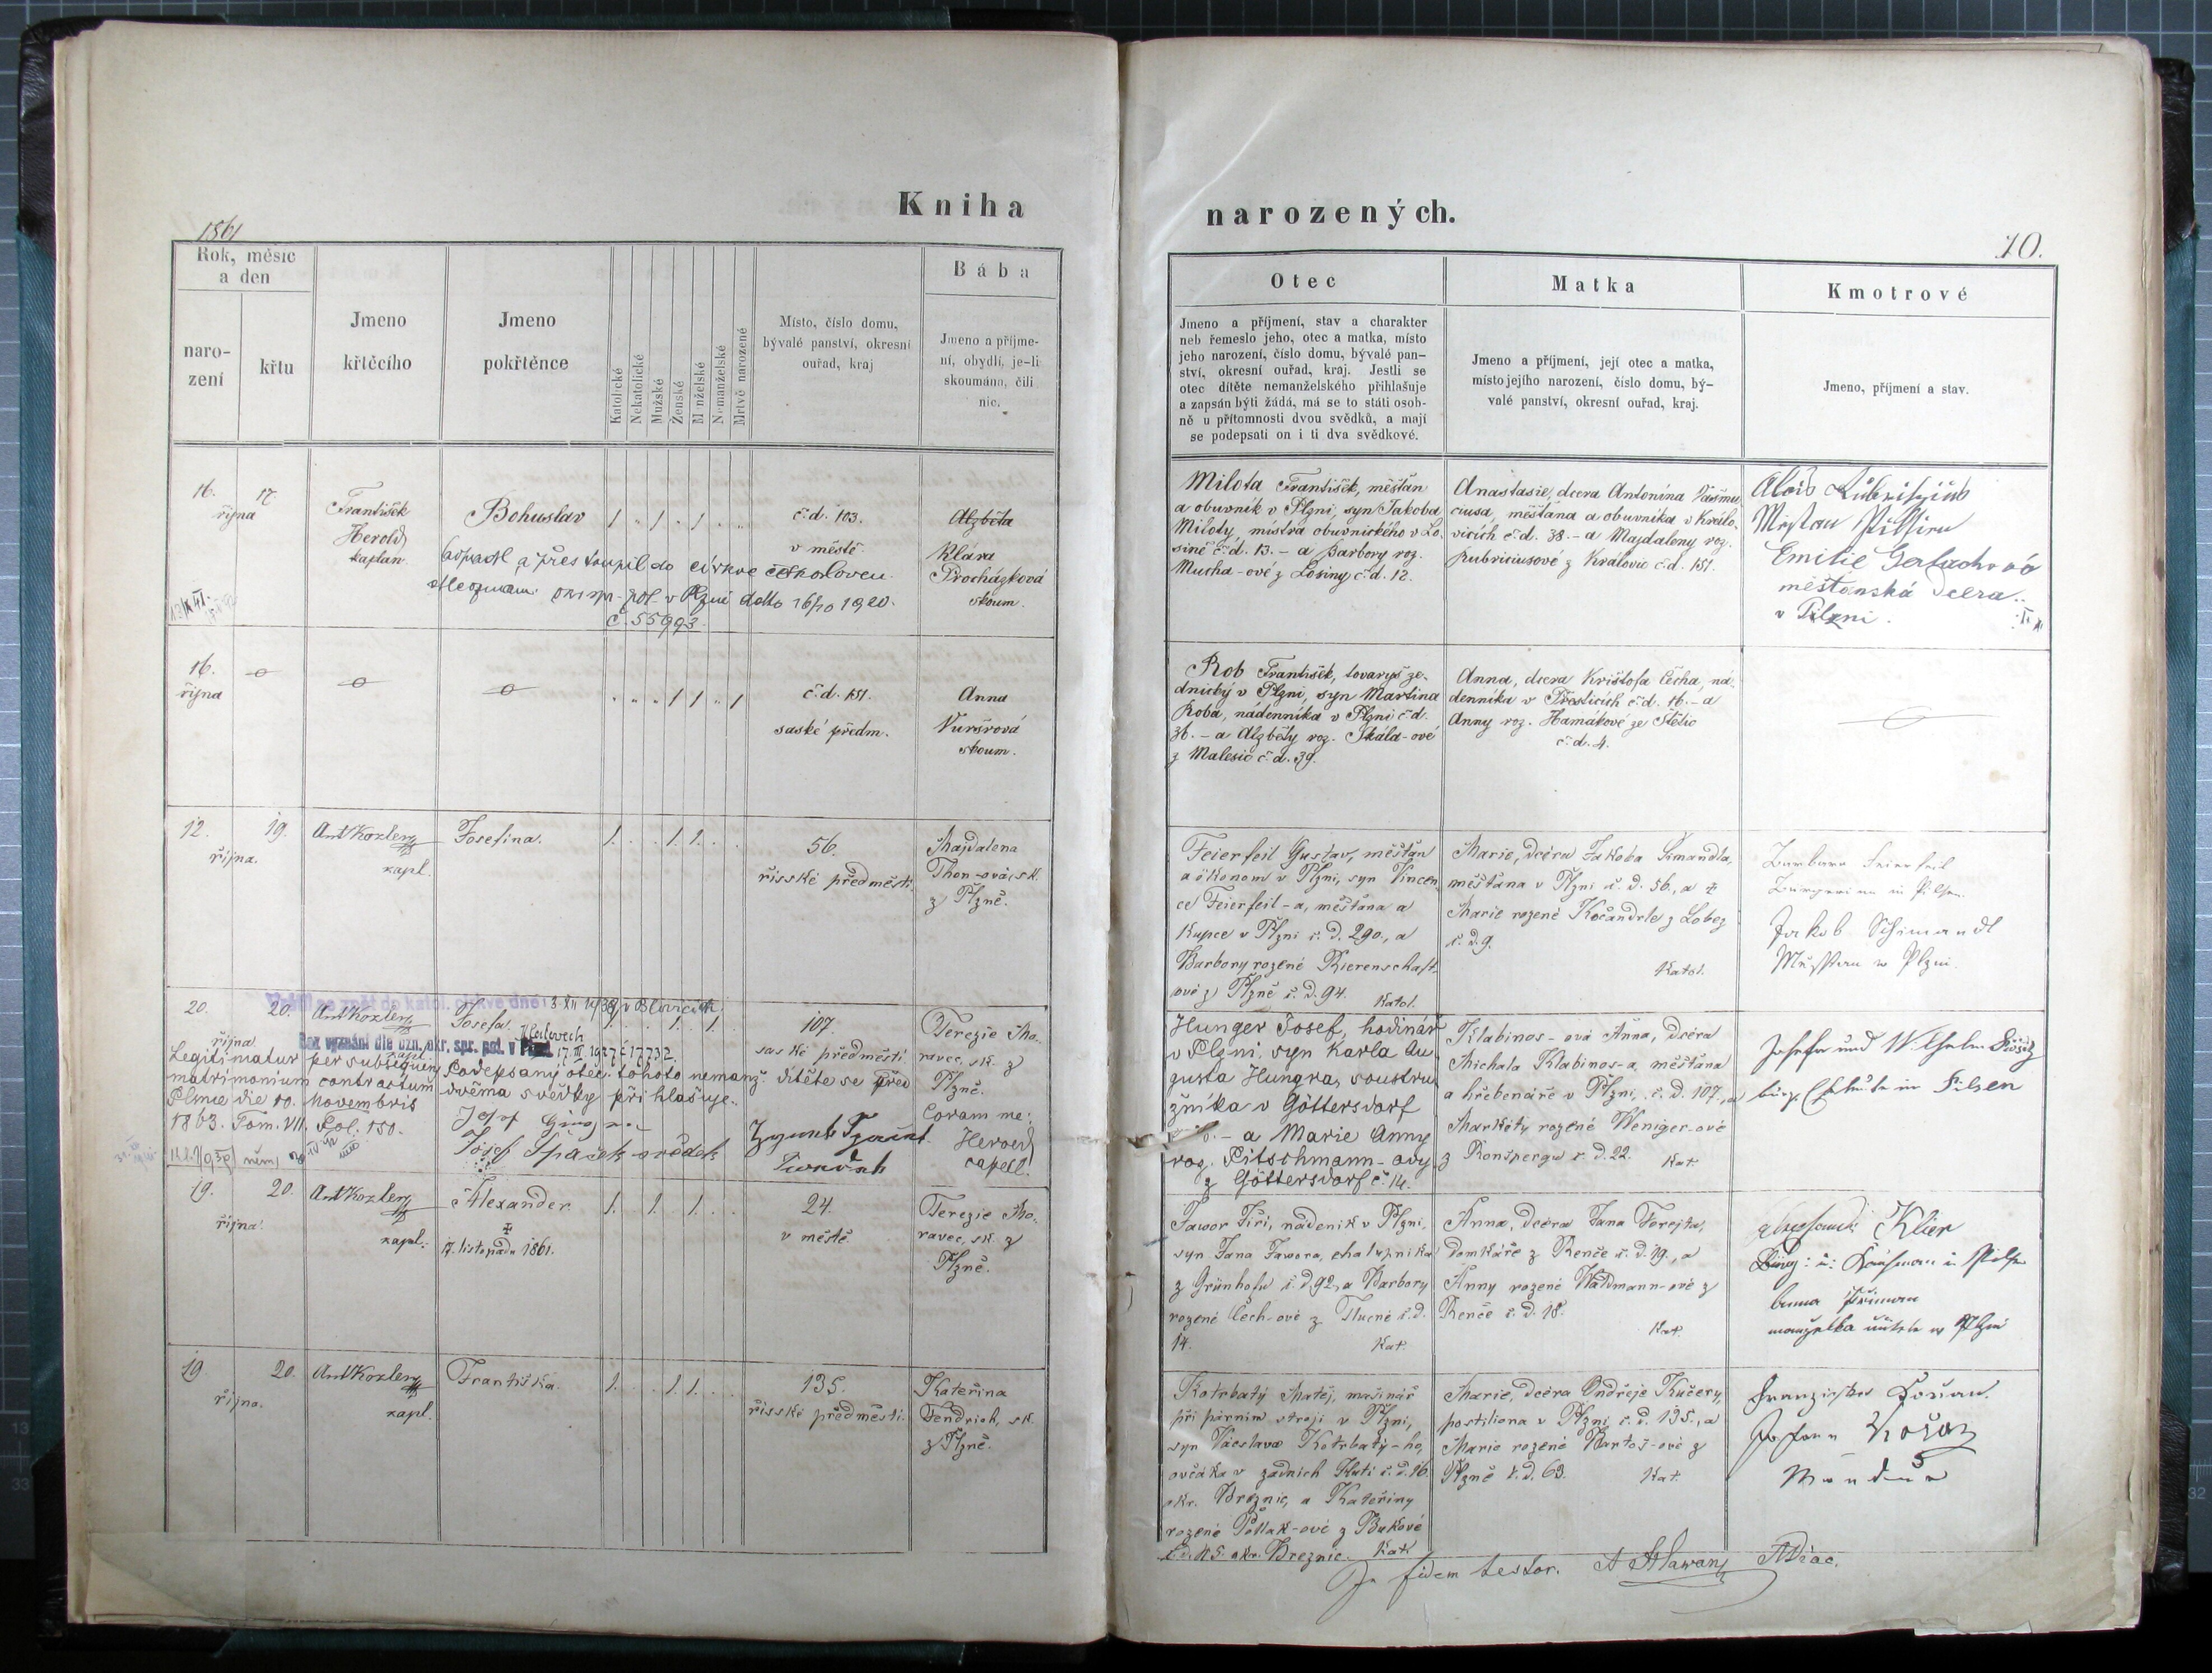 Kniha
narozených.
1861
10.
Rok, měsíc
a den
naro-
zení
křtu
Jmeno
křtěcího
Jmeno
pokřtěnce
Katolické
Nekatolické
Mužské
Ženské
Mtrvě narozené
Místo, číslo domu,
bývalé panství, okresní
ouřad, kraj
Bába
Jmeno a příjme-
ní, obydlí, je-li
skoumána, čili
nic.
Otec
Jmeno a příjmení, stav a charakter
neb řemeslo jeho, otec a matka, místo
jeho narození, číslo domu, bývalé pan-
ství, okresní ouřad, kraj. Jestli se
otec dítěte nemanželského přihlašuje
a zapsán býti žádá, má se to státi osob-
ně u přítomnosti dvou svědků, a mají
se podepsati on i ti dva svědkové.
Matka
Jmeno a příjmení, její otec a matka,
místo jejího narození, číslo domu, bý-
valé panství, okresní ouřad, kraj.
Kmotrové
Jmeno, příjmení a stav.
16. 17.
října
František
Herold
kaplan.
Bohuslav
1 " 1 " 1 " "
č. d. 103.
v městě.
Alzběta
Klára
Procházková
skoum.
odpadl a přestoupil do církve českosloven.
v Plzni dtto 16/10 1920.
č. 55993.
Milota František, měšťan
a obuvník v Plzni, syn Jakoba
Miloty, mistra obuvnického v Lo-
sině č. d. 13. – a Barbory roz.
Mucha-ové z Losiny č. d. 12.
Anastasie, dcera Antonína
ciusa, měšťana a obuvníka v Králo-
vicích č. d. 38. – a Majdaleny roz.
Rubriciusové z Královic č. d. 151.
Emilie
měšťanská dcera
v Plzni.
16.
října
" " " 1 1 " 1
č. d. 151.
saské předm.
Anna
skoum.
Rob František, tovaryš ze-
dnický v Plzni, syn Martina
Roba, nádenníka v Plzni č. d.
36. – a Alzběty roz. Skála-ové
z Malesic č. d. 39.
Anna, dcera Krištofa Čecha, ná-
denníka v Přesticích č. d. 16. – a
Anny roz. Hamákové ze Stětic
č. d. 4.
12. 19.
října.
Ant Kozler
kapl.
Josefina.
1. . . 1. 1. . .
56.
řisské předměstí.
Majdalena
Thon-ová, sk.
z Plzně.
Feierfeil Gustav, měšťan
a ökonom v Plzni, syn Vincen
ce Feierfeil-a, měšťana a
kupce v Plzni č. d. 290., a
Barbory rozené Rierenschaft-
ové z Plzně č. d. 94. Katol.
Marie, dcera Jakoba Šmandla,
měšťana v Plzni č. d. 56., a
Marie rozené Kočandrle z Lobez
č. d. 9.
Katol.
Barbara Feierfeil
Bürgerinn in Pilsen.
Jakob Schimandl
20. 20.
října
Ant Kozler
kapl.
Josefa.
1. . . 1. . 1.
107.
saské předměstí.
Terezie Mo-
ravec, sk. z
Plzně.
Vrátil se zpět do katol. církve dne 3. XII 1938 v Blovicích.
Bez vyznání dle ozn. okr. spr. pol. v 17. III. 1927 č 17732.
Legitimatur per subsequens
matrimonium contractum
Plnae die 10. Novembris
1863. Tom. VII. Fol. 150.
Podepsaný otec tohoto nemanž. dítěte se před
dvěma svědky přihlašuje.
Josef Spaček svědek
Coram me:
Herold
capell.
Hunger Josef, hodinář
v Plzni, syn Karla Au-
gusta Hungra, soustru
žníka v Göttersdorf
– a Marie Anny
roz. Pitschmann-ovy
z Göttersdorf č. 14.
Klabinos-ová Anna, dcera
Michala Klabinos-a, měšťana
a hřebenáře v Plzni, č. d. 107., a
Markéty rozené Weniger-ové
z Ronšpergu č. d. 22. Kat.
Josefa und Wilhelm
in Pilsen
19. 20.
října.
Ant Kozler
kapl.
Alexander.
‡
17. listopadu 1861.
1. . 1. . 1. . .
24.
v městě
Terezie Mo-
ravec, sk. z
Plzně.
Jawor Jiří, nádeník v Plzni,
syn Jana Jawora, chalupníka
z Grünhofu č. d. 92., a Barbory
rozené Čech-ové z Tlucné č. d.
14. Kat.
Anna, dcera Jana Forejta,
domkáře z Renče č. d. 19., a
Anny rozené Wadmann-ové z
Renče č. d. 18.
Kat.
Klier
19. 20.
října.
Ant Kozler
kapl.
Františka.
1. . . 1. 1. . .
135.
řisské předměstí.
Kateřina
Fendrich, sk.
z Plzně.
Kotrbatý Matěj, mašinář
při parním stroji v Plzni,
syn Václava Kotrbatý-ho,
ovčáka v zadních Hutí č. d. 16.
okr. Breznic, a Kateřiny
rozené Pollak-ové z Bukové
č. d. 45. okr. Breznic. Kat.
Marie, dcera Ondřeje Kučery,
postiliona v Plzni č. d. 135., a
Marie rozené Bartoš-ové z
Plzně č. d. 63. Kat.
In fidem testor.